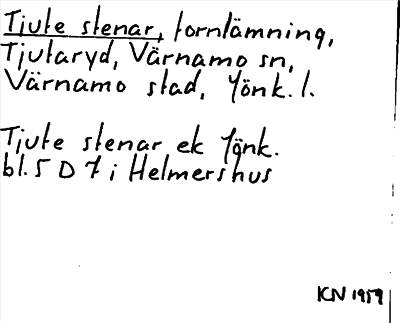 Tjute stenar, fornlämning,
Tjutaryd, Värnamo sn,
Värnamo stad, Jönk. l.
Tjute stenar ek Jönk.
bl. 5 D 7 i Helmershus
KN 1959